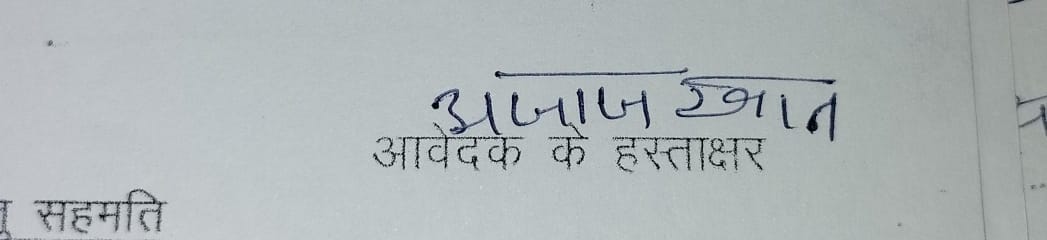 अजाज खान
आवेदक के हस्ताक्षर
सहमति